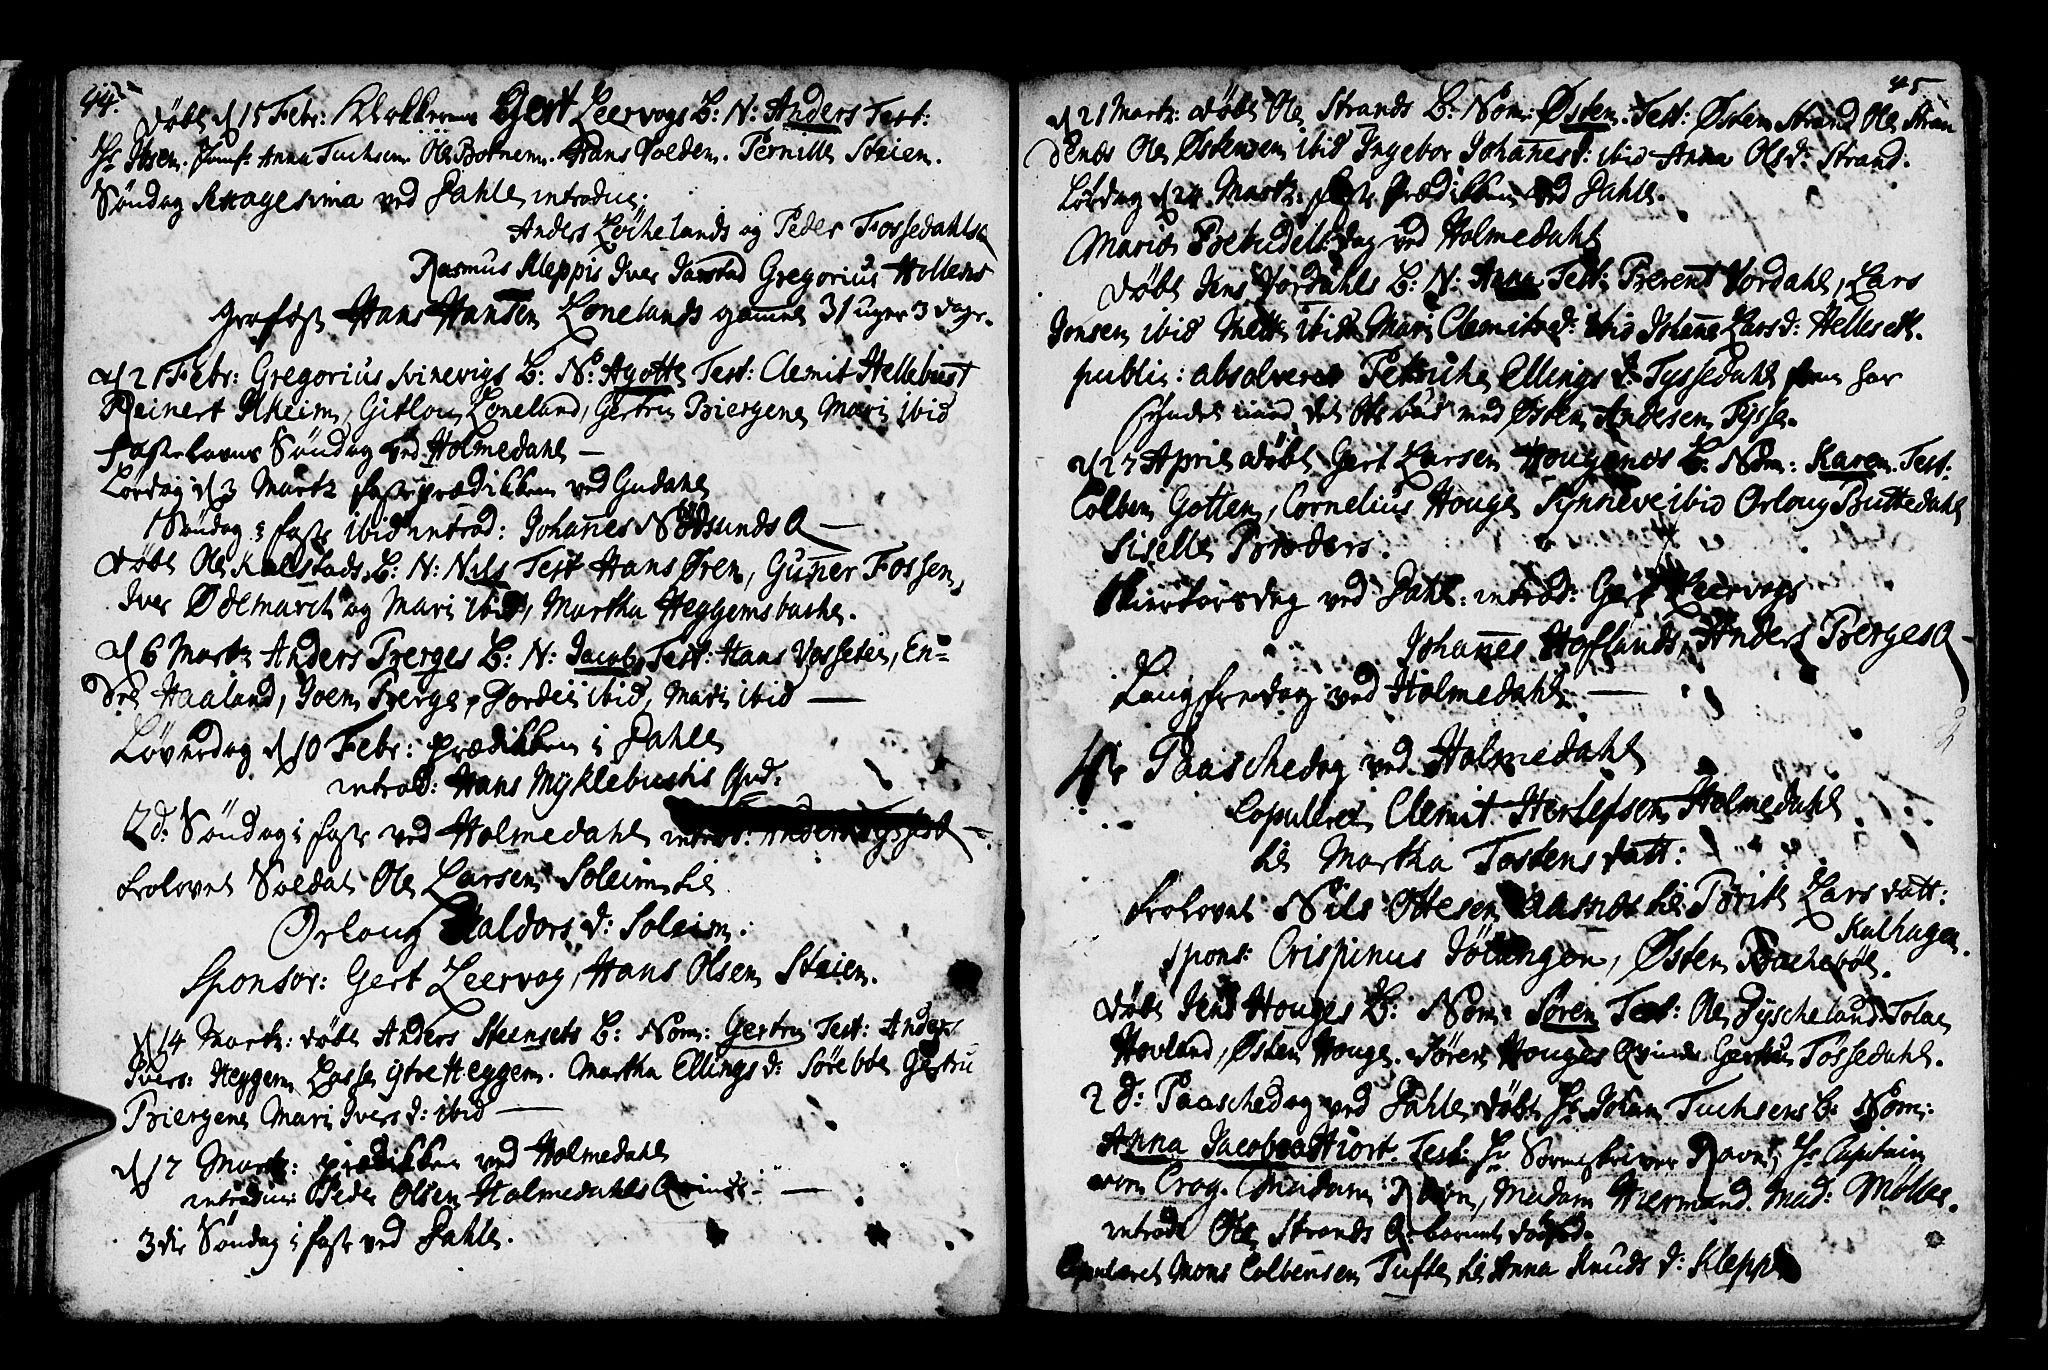 44.
Døbt d 15 Febr: Klokkerens Gert Leervogs B: N: Anders Test:
Hr Ibsen. Jomf: Anna Tuchsen. Ole Bornem. Hans Voeden. Pernille Steien.
Søndag Sexagesima ved Dahle introduc:
Anders Løchelands og Peder Fossedahls Q
Rasmus Kleppis Iver Jarstad Gregorius Hollens
Grafæst Hans Hansen Lonelands gammel 31 uger 3 dage.
d 21 Febr: Gregorius Svinevigs B: N: Agotte Test: Clemit Hellebust
Reinert Alheim, Gitlou Loneland, Gertru Biergene Mari ibid
Fastelavns Søndag ved Holmedahl —
Lørdag d 3 Martz faste prædikken ved Gudahl
1 Søndag i faste ibid introd: Johannes Nødsunds Q —
Døbt Ole Kalstads B: N: Nils Test Hans Øren, Guner Fossen,
Iver Ødemarch og Mari ibid, Martha Heggemsbache.
d 6 Martz Anders Berges B: N: Jacob Test: Hans Vosseteien, En-
dre Haaland, Joen Berge, Gordei ibid, Mari ibid —
Løverdag d 10 Febr: prædikken i Dahle
introd: Hans Myklebustis Qvd.
2d: Søndag i faste ved Holmedahl introd: Anders
trolovet Soldat Ole Larsen Soleim til
Orloug Haldors d: Soleim.
Sponsor: Gert Leervog, Hans Olsen Steien.
d 14 Martz: døbt Anders Steensets B: Nom: Gertru Test: Anders
Ivers: Heggem Lasse ytre Heggem. Martha Ellings d: Sørebøe Gertru
Biergene Mari Ivers d: ibid —
d 17 Martz: prædikken ved Holmedahl
introduc Peder Olsen Holmedahls Qvinde —
3die Søndag i faste ved Dahle.
45
d 21 Martz: døbt Ole Strands B: Nom: Østen. Test: Østen Strand Ole Stran
denes Ole Østensen ibid Ingebor Johannesd: ibid Anna Olsd: Strand.
Lørdag d 24 Martz: faste Prædikken ved Dahle.
Mariæ Bebudels: dag ved Holmedahl
Døbt Jens Vordahls B: N: Anna Test: Berent Vordahl, Lars
Jonsen ibid Mette ibid Mari Clemitsd: ibid Johanne Larsd: Helleseth.
public: absolveret Petriche Ellings d: Tyssedahl som har
syndet imod det 6te bud med Østen Andersen Tysse.
d 27 April døbt Gert Larsen Hougenes B: Nom: Karen. Test:
Colben Gotten, Cornelius Houge Synneve ibid Orloug Buttedahl
Siselle Brøders.
Skiertorsdag ved Dahl: introd: Gert Leervogs
Johannes Hoflands, Anders Berges Q —
Langfredag ved Holmedahl —
1ste Paaschedag ved Holmedahl
Copuleret Clemit Herlefsen Holmedahl
til Martha Tostens datt:
trolovet Nils Ottesen Aasnes til Brite Lars datt:
Kalhagen.
spons: Crispinus Jølangen, Østen Bachebøe.
Døbt Jens Houges B: Nom: Søren Test: Ole Dyscheland Tolae
Hovland, Østen Houge. Søren Houges Qvinde Gertru Tøssedahl.
2 d: Paaschedag ved Dahle døbt Hr Johan Tuchsens B: Nom:
Anna Jacobæa Hiort. Test: Hr Sorenskriver Ravn, Hr Capitain
von Crog. Madam Ravn, Madam Hiermand. Mad: Møller.
introd: Ole Strands Q: barnet død fød.
Copuleret Mons Colbensen Tufte til Anna Knuds d: Klepp